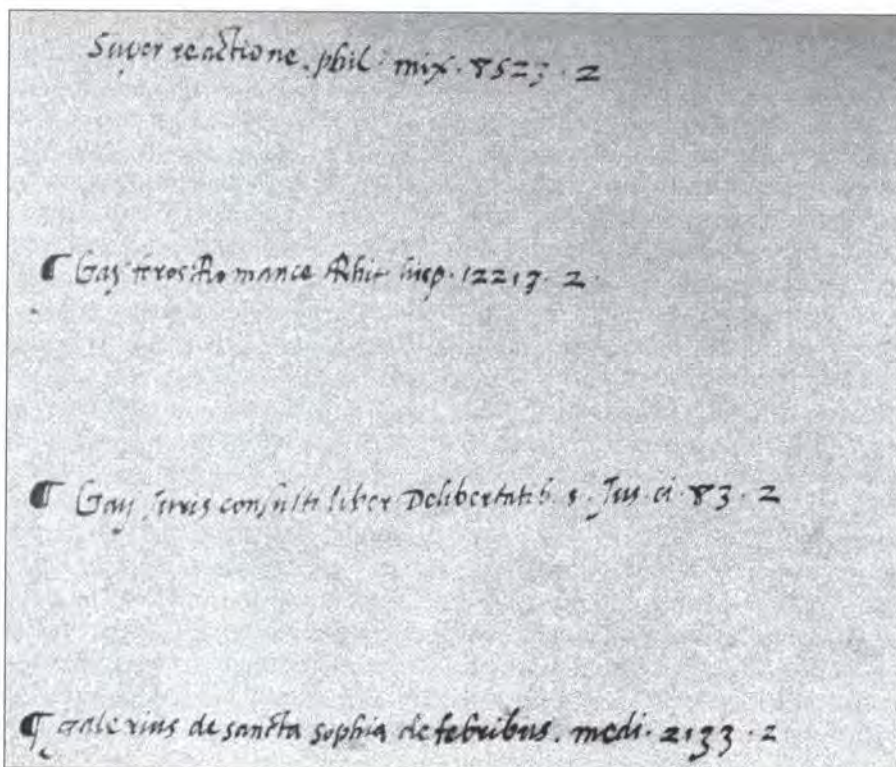 Super reactione . phil. mix . 8523 . 2
¶ Gay feros Romance Rhit hisp . 12213 . 2 .
¶ Gaij Juris consulti liber De libertatib. s . Jus ci . 83 . 2
¶ galerius de sancta sophia de febribus . medi . 2133 . 2